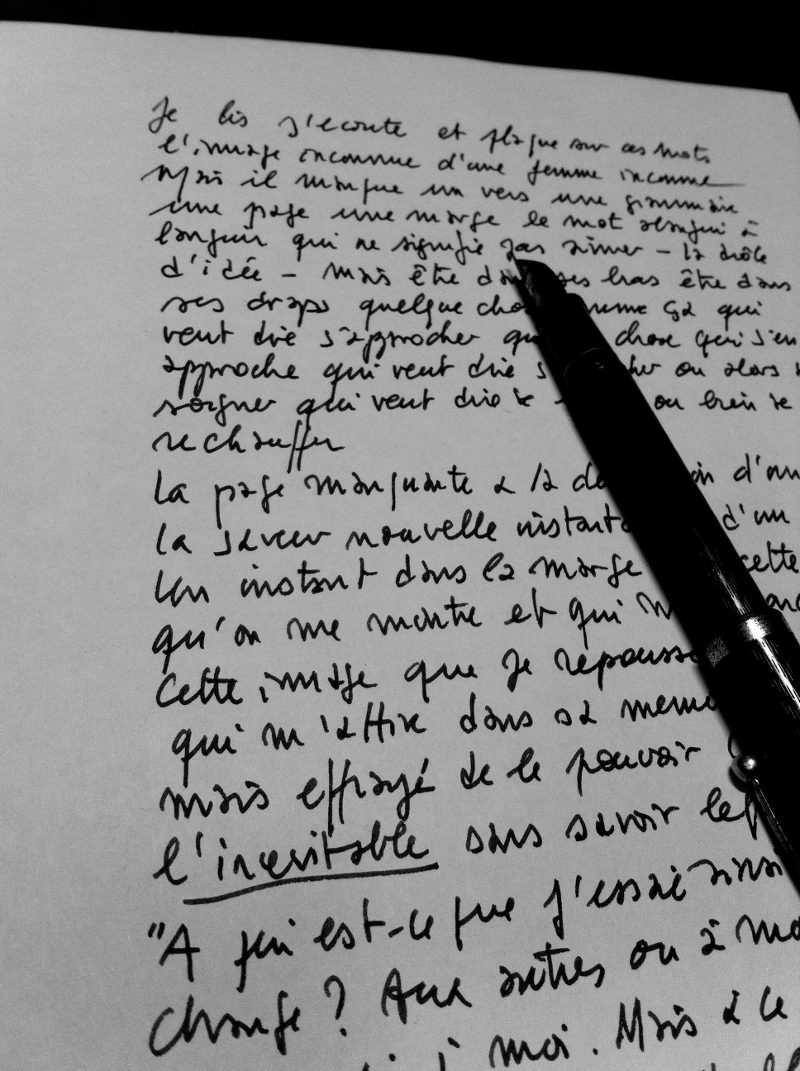 Je lis j'ecoute et plaque sur ces mots
l'image inconnue d'une femme inconnue
Mais il manque un vers une grammaire
une page une marge le mot
langueur qui ne signifie pas aimer - la drôle
d'idée - mais être dans ses bras être dans
ses draps quelque chose comme ça qui
veut dire s'approcher chose qui s'en
approche qui veut dire ou alors
soigner qui veut dire se ou bien se
rechauffer
La page manquante a la d'un
la saveur nouvelle d'un
Un instant dans la marge cette
qu'on me montre et qui
Cette image que je repousse
qui m'attire dans sa
mais effrayé de le pouvoir
l'inevitable sans savoir
"A qui est-ce que j'essaie ainsi
change? Aux autres ou à
moi. Mais à ce